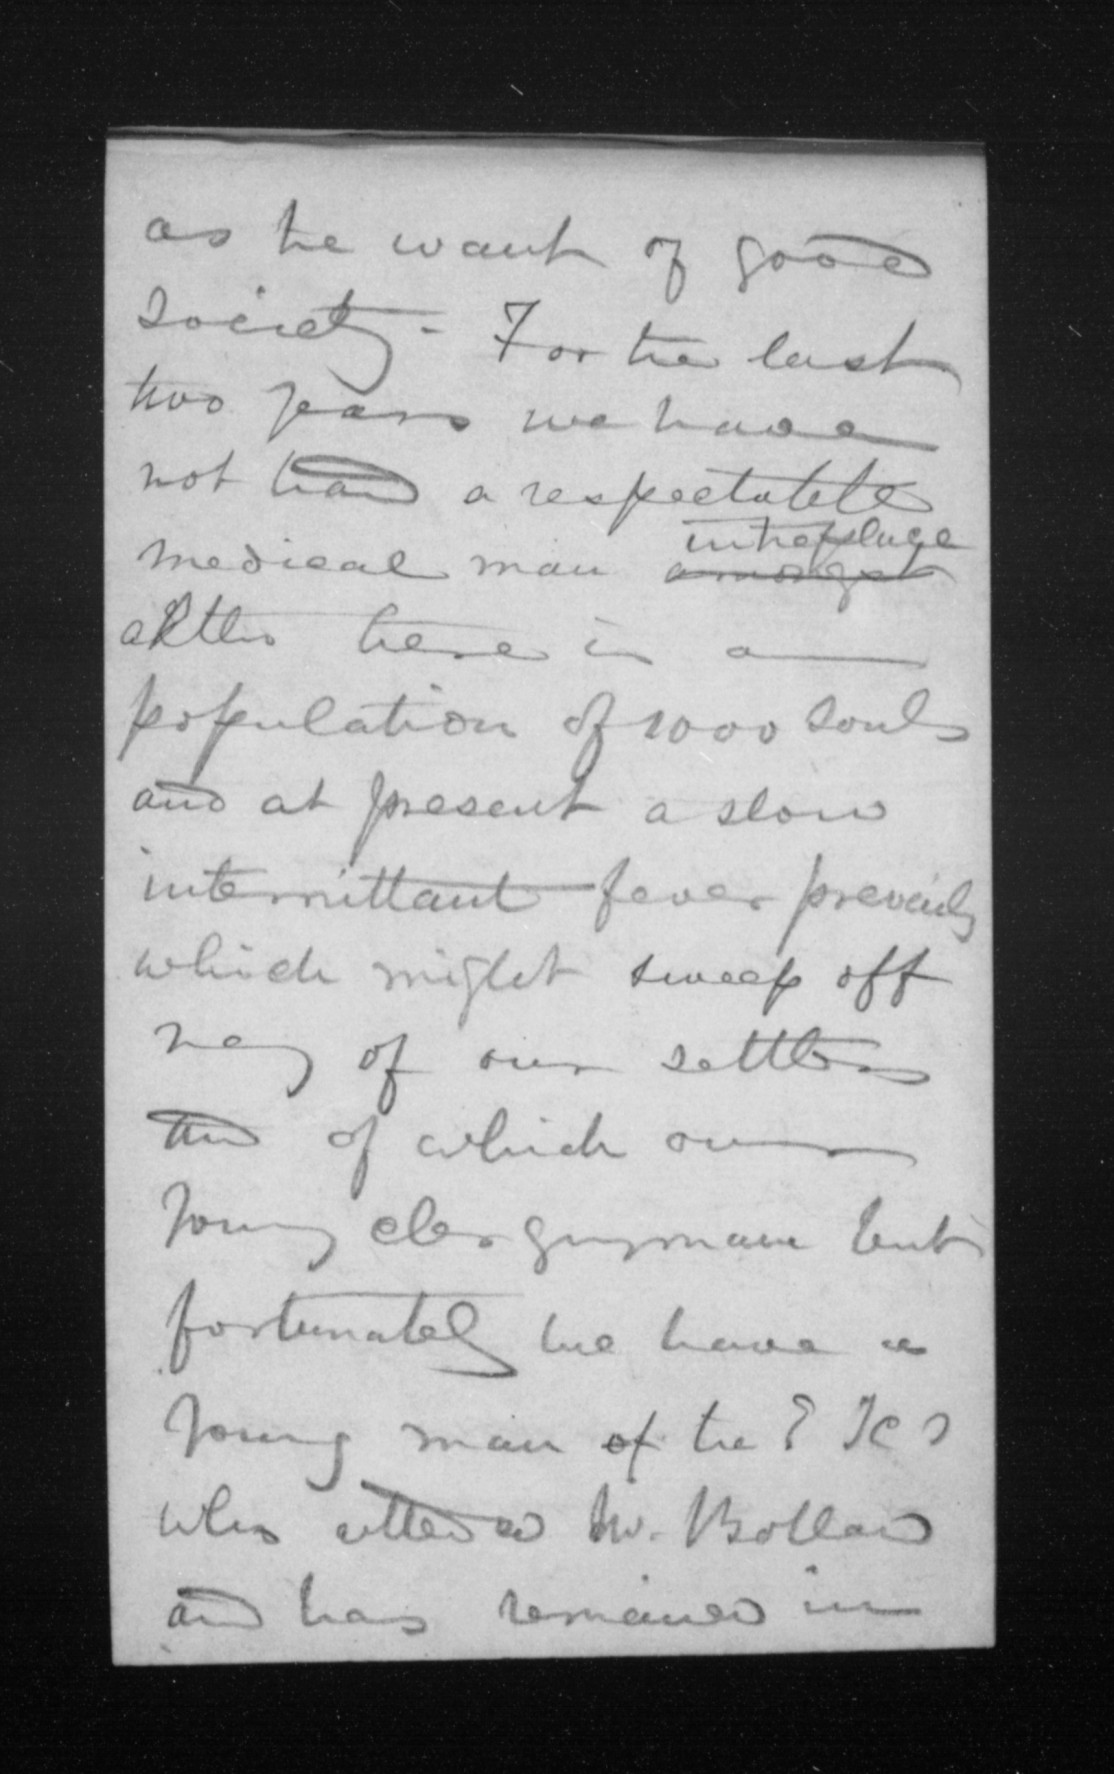 as the want of good
society - For the last
two years we have
not had a respectable
medical man in the place
amongst
altho there is a
population of 1000 souls
and at present a slow
intermittant fever prevails
which might sweep off
many of our settlers
and of which our
young clergyman but
fortunately we have a
young man of the
who attended Mr. Bolland
and has remained in